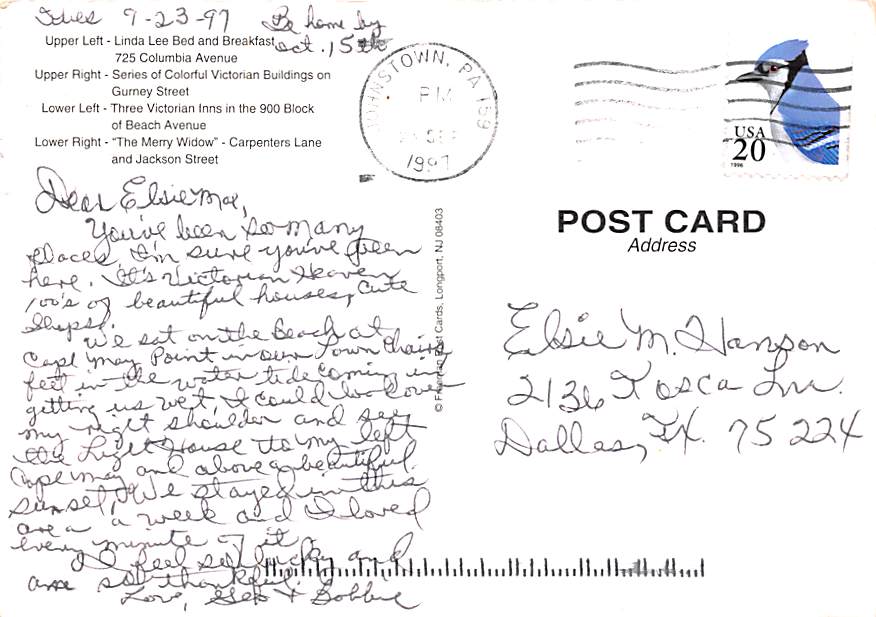 Tues 9-23-97 Be home by
Oct. 15th
Upper Left - Linda Lee Bed and Breakfast
725 Columbia Avenue
Upper Right - Series of Colorful Victorian Buildings on
Gurney Street
Lower Left - Three Victorian Inns in the 900 Block
of Beach Avenue
Lower Right - "The Merry Widow" - Carpenters Lane
and Jackson Street
JOHNSTOWN, PA 159
PM
SEP
1997
USA
20
1996
Dear Elsie Mae,
You've been so many
places, I'm sure you've been
here. It's Victorian Heaven
100's of beautiful houses, cute
shops.
We sat on the beach at
Cape May Point in our own chairs
feet in the water tide coming in
getting us wet, I could look over
my right shoulder and see
the Light House to my left
Cape May and above a beautiful
sunset, We stayed in this
area a week and I loved
every minute of it.
I feel so lucky and
am so thankful.
Love, & Bobbie
© Freeman Post Cards, Longport, NJ 08403
POST CARD
Address
Elsie M. Hanson
2136 Tosca Ln.
Dallas, TX. 75224